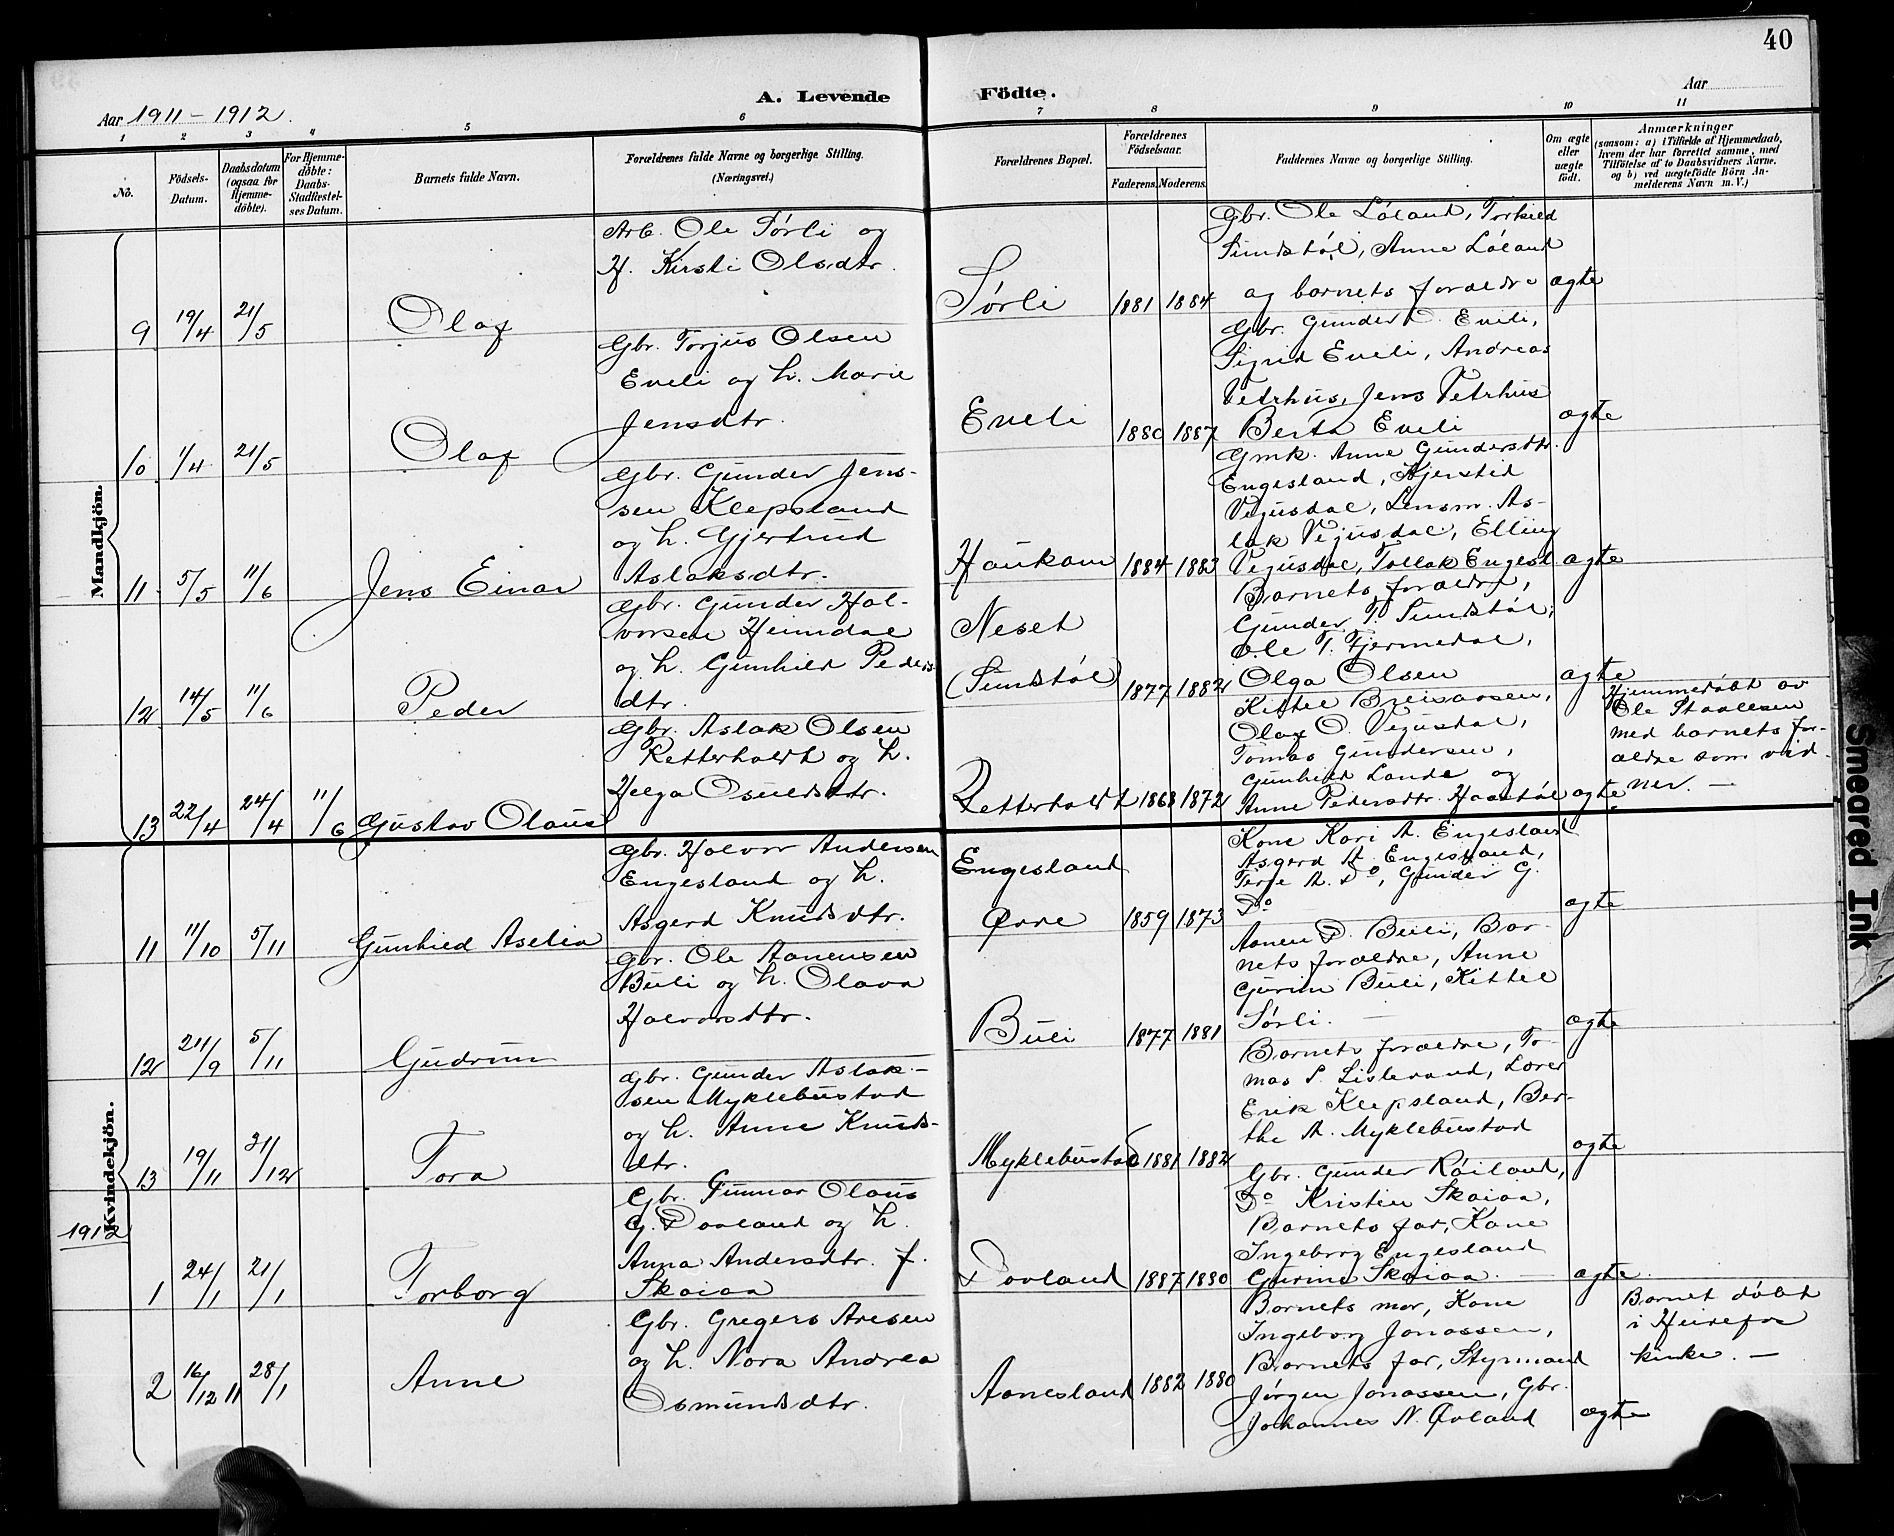 40
Aar 1911 – 1912.
A. Levende Födte.
Aar
1 2 3 4 5 6 7 8 9 10 11
No.
Födsels-Datum.
Daabsdatum (ogsaa for Hjemme-döbte).
For Hjemme-döbte: Daabs-Stadfestel-ses Datum.
Barnets fulde Navn.
Forældrenes fulde Navne og borgerlige Stilling.
(Næringsvei.)
Forældrenes Bopæl.
Forældrenes Födselsaar.
Faderens. Moderens.
Faddernes Navne og borgerlige Stilling.
Om ægte eller uægte födt.
Anmærkninger
(saasom: a) i Tilfælde af Hjemmedaab, hvem der har forrettet samme, med Tilföielse af to Daabsvidners Navne, og b) ved uægtefödte Börn Anmelderens Navn m. V.)
Mandkjön.
9 19/4 21/5 Olaf
Arb. Ole Sørli og
H. Kirsti Olsdtr.
Sørli 1881 1884
Gbr. Ole Løland, Torkild
Sundstøl, Anne Løland
og barnets forældre
ægte
10 1/4 21/5 Olaf
Gbr. Torjus Olsen
Eveli og h. Marie
Jensdtr.
Eveli 1880 1887
Gbr. Gunder O. Eveli,
Sigrid Eveli, Andreas
Vetrhus, Jens Vetrhus
Berta Eveli
ægte
11 5/5 11/6 Jens Einar
Gbr. Gunder Jens-
sen Klepsland
og h. Gjertrud
Aslaksdtr.
Haukom 1884 1883
Gmk. Anne Gundersdtr.
Engesland, Kjerstid
Vegusdal, Lensm. As-
lak Vegusdal, Elling
Vegusdal, Tallak Engesl
ægte
12 14/5 11/6 Peder
Gbr. Gunder Hal-
vorsen Heimdal
og h. Gunhild Peders
dtr.
Neset
(Sundstøl) 1877 1882
Barnets forældre,
Gunder T. Sundstøl,
Ole T. Fjermedal,
Olga Olsen
ægte
13 22/4 24/4 11/6 Gustav Olaus
Gbr. Aslak Olsen
Retterholdt og h.
Helga Osuldsdtr.
Retterholdt 1868 1872
Kittel Breivarsen,
Olav O. Vegusdal,
Tomas Gundersen,
Gunhild Lande og
Anne Pedersdtr. Haastøl
ægte
Hjemmedøbt av
Ole Staalesen
med barnets for-
ældre som vid-
ner. –
Kvindekjön.
11 11/10 5/11 Gunhild Aselia
Gbr. Halvor Andersen
Engesland og h.
Asgerd Knudsdtr.
Engesland
Øvre 1859 1873
Kone Kari A. Engesland
Asgerd A. Engesland,
Terje A. Do, Gunder G.
Do
ægte
12 24/9 5/11 Gudrun
Gbr. Ole Aanensen
Buli og h. Olava
Halvorsdtr.
Buli 1877 1881
Aanen D. Buli, Bar-
nets forældre, Anne
Gurine Buli, Kittel
Sørli. –
ægte
13 19/11 31/12 Tora
Gbr. Gunder Aslak-
sen Myklebustad
og h. Anne Knuds-
dtr.
Myklebustad 1881 1882
Barnets forældre, To-
mas S. Lislevand, Lærer
Erik Klepsland, Ber-
the A. Myklebustad
ægte
1912
1 24/1 21/1 Torborg
Gbr. Gunnar Olaus
G. Dovland og h.
Anna Andersdtr. f.
Skaiaa
Dovland 1887 1880
Gbr. Gunder Røiland,
Do Kristen Skaiaa,
Barnets far, Kone
Ingeborg Engesland
Gurine Skaiaa. –
ægte
2 16/12 11 28/1 Anne
Gbr. Gregers Aresen
og h. Nora Andrea
Osmundsdtr.
Aanesland 1882 1880
Barnets mor, Kone
Ingeborg Jonassen,
Barnets far, Styrmand
Jørgen Jonassen, Gbr.
Johannes N. Øvland
ægte
Barnet døbt
i Heirefos
kirke. –
Smeared Ink